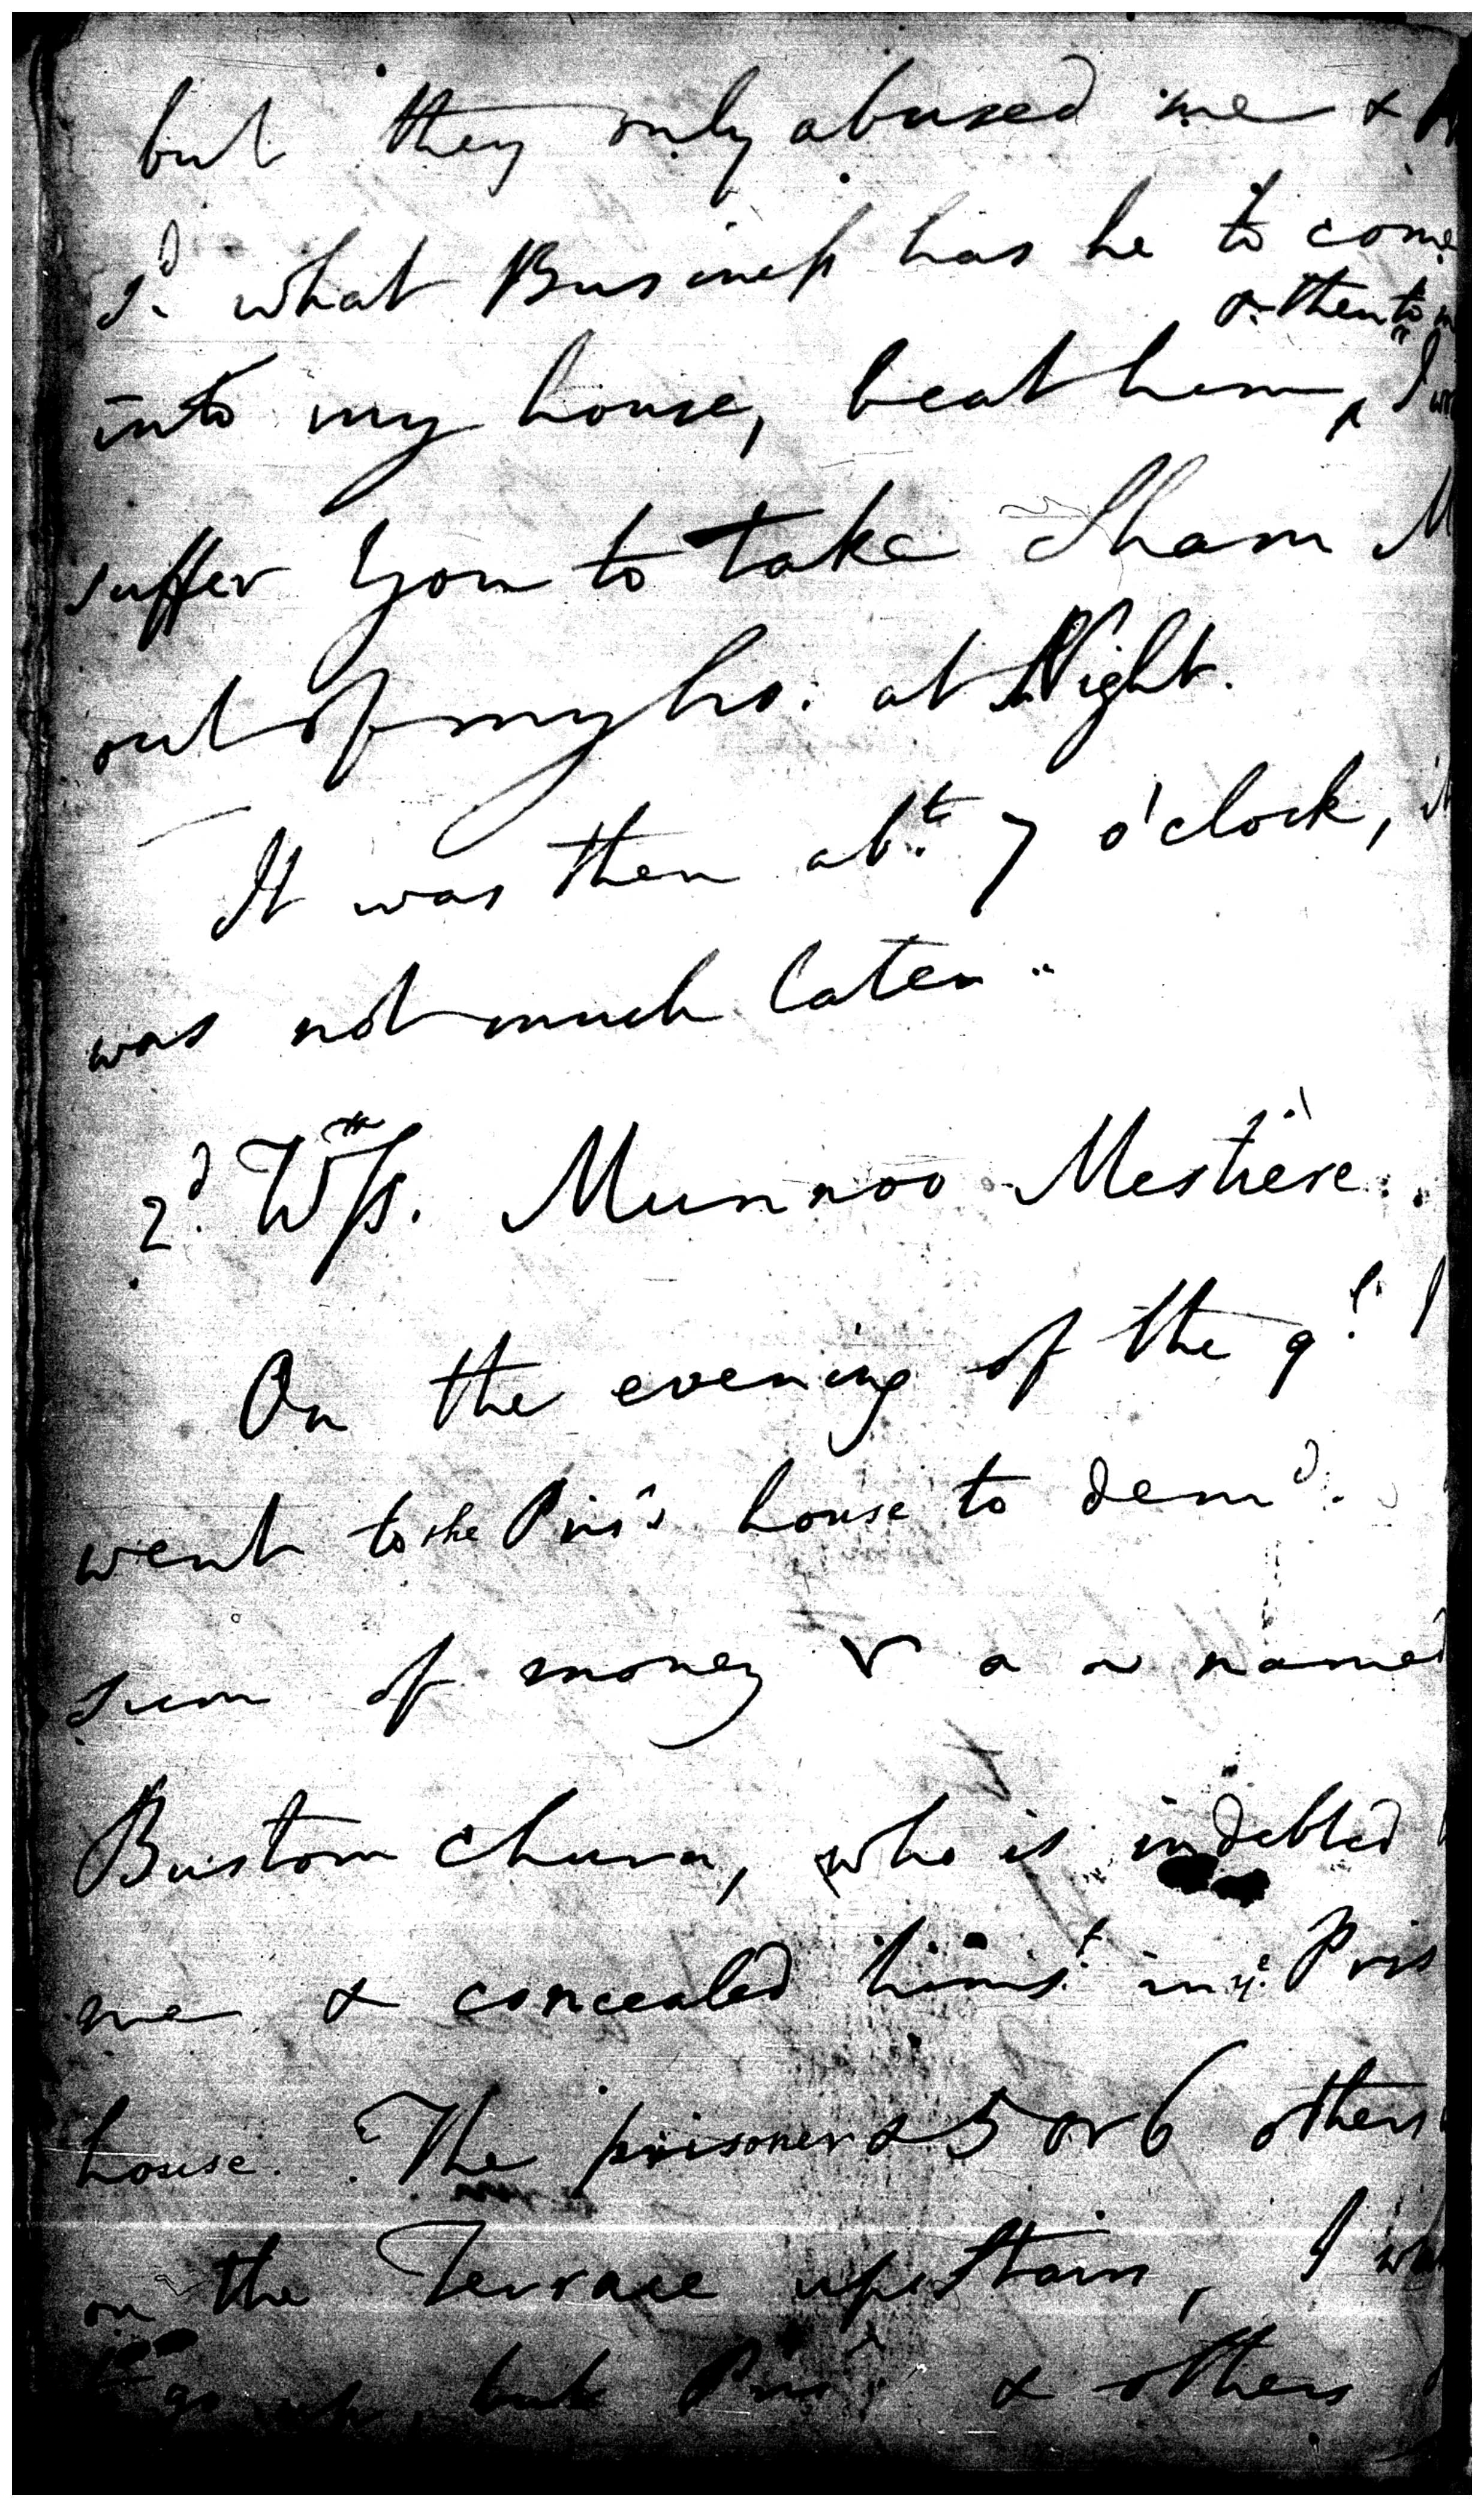 but they only abused me &
sd. what Business has he to come
& then to
into my house, beat him, I
suffer you to take Sham M
out of my ho: at Night.
It was then abt. 7 o'clock, it
was not much later..
2d. Wss. Munnoo Mestrere.
On the evening of the 9th. I
went to the Prisr's house to demd.
sum of money of a named
Bustom Churn, who is indebted
me & concealed himst. in ye. Pris
house. The prisoner & 5 or 6 others
on the Terrace upstairs, I
go up, but Prisr & others